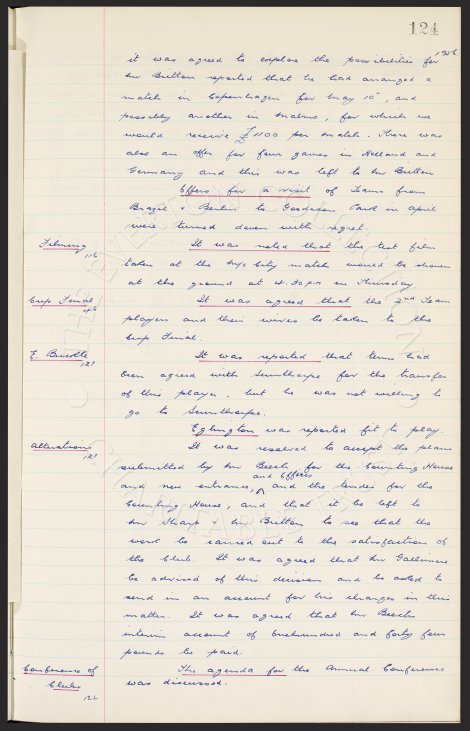 124
it was agreed to explore the possibilities for
Mr Britton reported that he had arranged a
match in Copenhagen for May 10th, and
possibly another in Malmo, for which we
would receive £1100 per match. There was
also an offer for four games in Holland and
Germany and this was left to Mr Britton
Offers for a visit of teams from
Brazil & Berlin to Goodison Park in April
were turned down with regret.
Filming
116
It was noted that the test film
taken at the City match would be shown
at the ground at 4.30pm on Thursday.
Cup Final
46
It was agreed that the 2nd Team
players and their wives be taken to the
Cup Final.
E. Buckle
121
It was reported that terms had
been agreed with Scunthorpe for the transfer
of this player, but he was not willing to
go to Scunthorpe.
Eglington was reported fit to play.
Alterations
121
It was resolved to accept the plans
submitted by Mr Beech for the Counting House
and Offices
and new entrances, ^ and the tender for the
Counting House, and that it be left to
Mr Sharp & Mr Britton to see that the
work be carried out to the satisfaction of
the Club. It was agreed that Mr Gallimore
be advised of this decision and be asked to
send in an account for his charges in this
matter. It was agreed that Mr Beechs
interim account of one hundred and forty four
pounds be paid.
Conference of
Clubs
122
The agenda for the Annual Conference
was discussed.